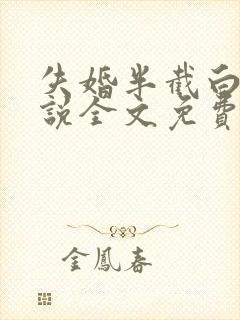 失婚半截白
說全文免費
金鳳春